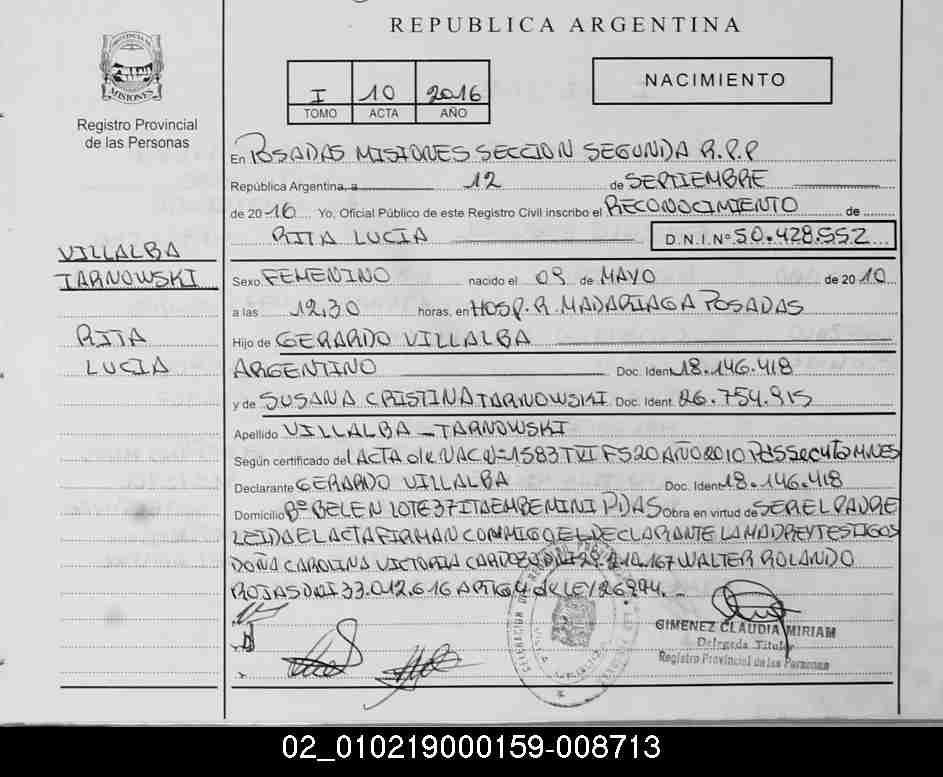 REPUBLICA ARGENTINA
PROVINCIA DE
MISIONES
Registro Provincial
de las Personas
I 10 2016
TOMO ACTA AÑO
NACIMIENTO
En POSADAS MISIONES SECCION SEGUNDA R.P.P
República Argentina, a 12 de SEPTIEMBRE
de 2016 Yo, Oficial Público de este Registro Civil inscribo el RECONOCIMIENTO de
RITA LUCIA D.N.I.Nº 50.428.552
VILLALBA
TARNOWSKI
RITA
LUCIA
Sexo FEMENINO nacido el 09 de MAYO de 2010
a las 12,30 horas, en HOSP. R. MADARIAGA POSADAS
Hijo de GERARDO VILLALBA
ARGENTINO Doc. Ident 18.146.418
y de SUSANA CRISTINA TARNOWSKI Doc. Ident. 26.754.915
Apellido VILLALBA - TARNOWSKI
Según certificado del ACTA de NAC Nº 1583 T VI F 520 AÑO 2010 Pdas Sec 4ta MNES
Declarante GERARDO VILLALBA Doc. Ident 18.146.418
Domicilio Bº BELEN LOTE 37 ITAEMBE MINI PDAS Obra en virtud de SER EL PADRE
LEIDA EL ACTA FIRMAN CONMIGO EL DECLARANTE LA MADRE Y TESTIGOS
DOÑA CAROLINA VICTORIA CARDOZO DNI 167 WALTER ROLANDO
ROJAS DNI 33.012.616 ART 64 de LEY 26994.-
GIMENEZ CLAUDIA MIRIAM
Delegada Titular
Registro Provincial de las Personas
02_010219000159-008713